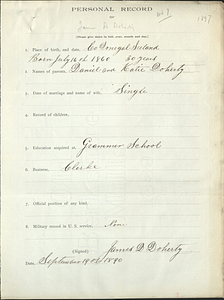 PERSONAL RECORD
OF
James D. Doherty
(Please give dates in full, years, months and days.)
1. Place of birth, and date, Co Donegal Ireland
Born July 16th 1860 30 years
2. Names of parents, Daniel and Katie Doherty
3. Date of marriage and name of wife, Single
4. Record of children,
5. Education acquired in Grammar School
6. Business, Clerke
7. Official position of any kind,
8. Military record in U. S. service, None
(Signed) James D Doherty
Date, September 19th 1890